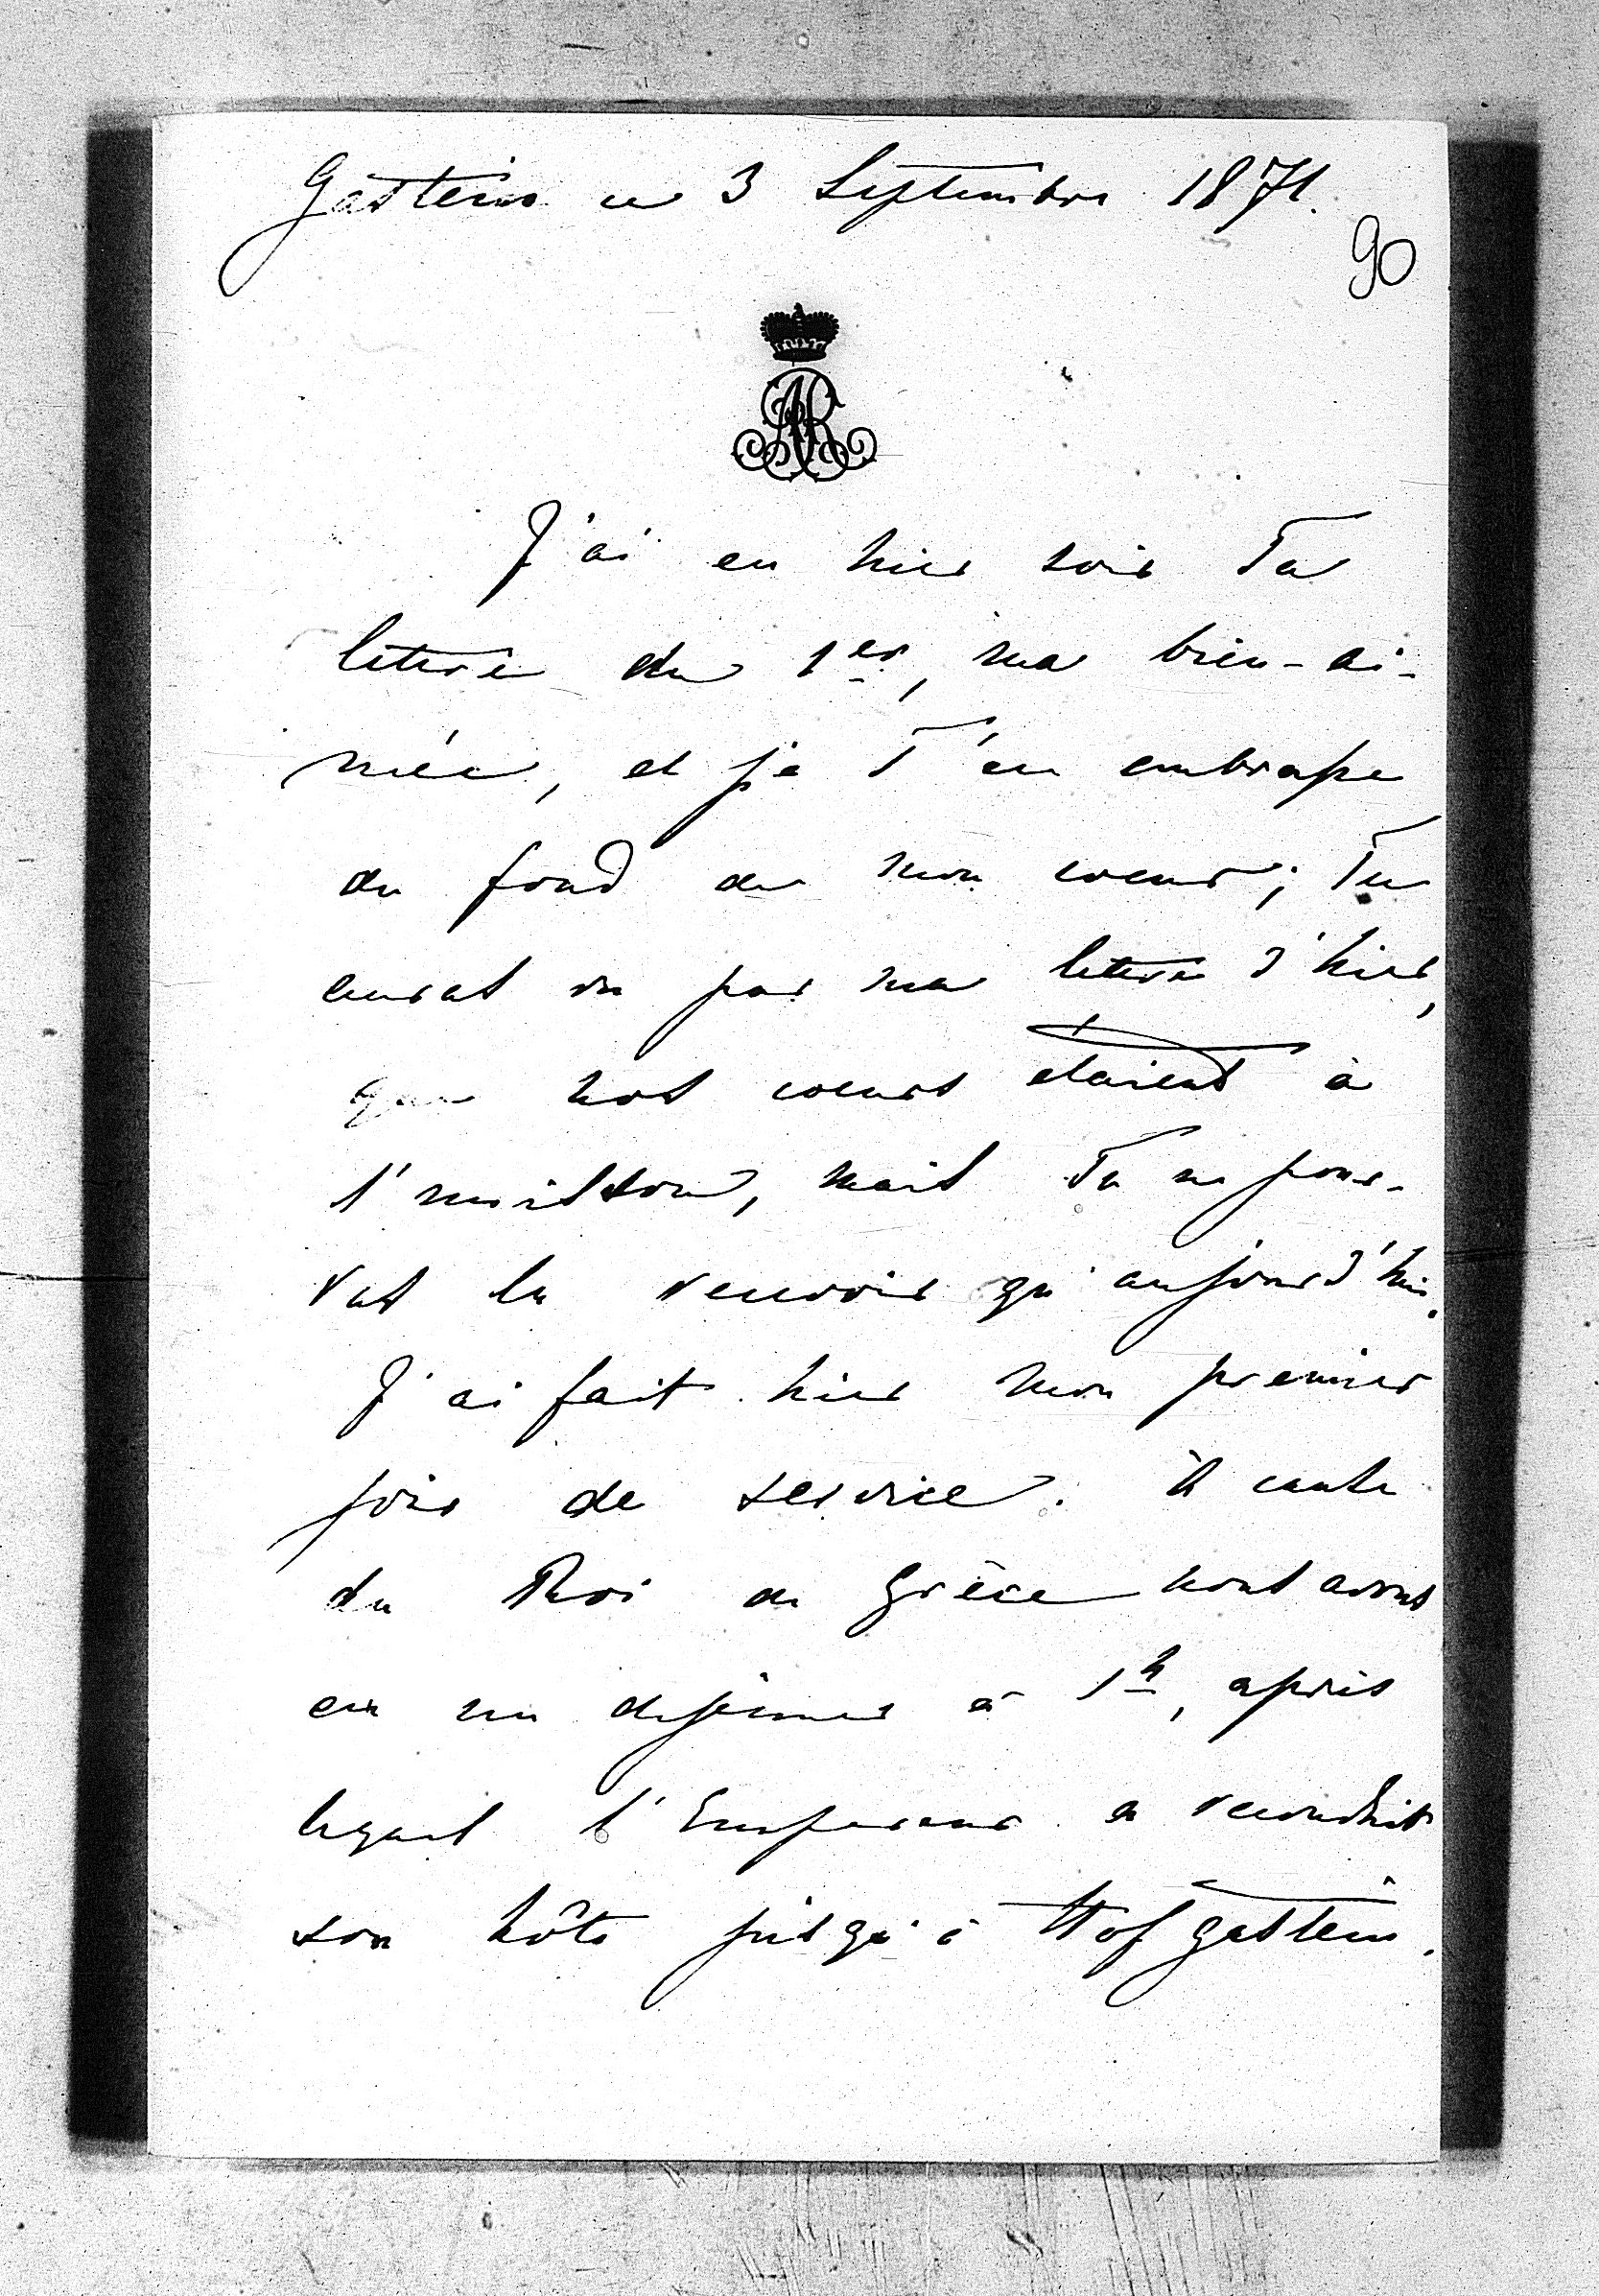 Gastein ce 3 Septembre 1871.
90
AR
J'ai eu hier soir Ta
lettre du 1er, ma bien-ai-
mée, et je T'en embrasse
du fond de mon coeur; Tu
auras vu par ma lettre d'hier,
que nos coeurs étaient à
l'unisson, mais Tu ne pou-
vas la recevoir qu'aujourd'hui.
J'ai fait hier mon premier
jour de service. À cause
du Roi de Grèce nous avons
eu un dejeuner à 1h, après
lequel l'Empereur a reconduit
son hôte jusqu'à Hofgastein.